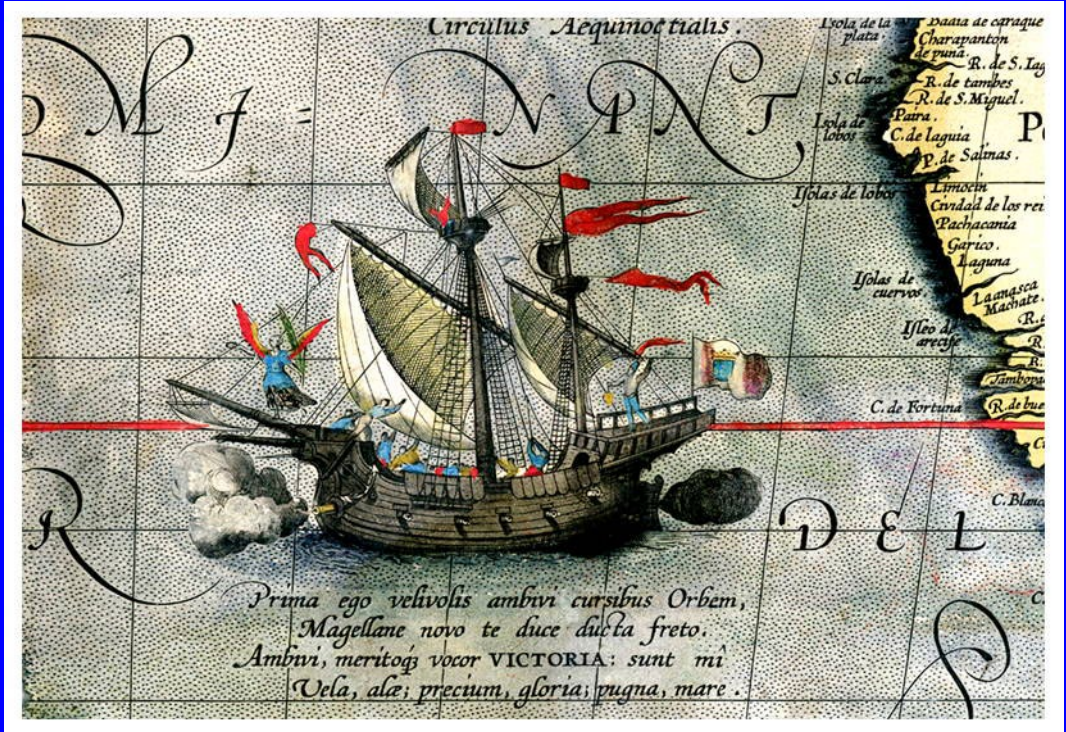 Circulus Aequinoctialis.
Isola de la
plata
Badia de caraque
Charapanton
de puna.
R. de S. Iag
S. Clara
R. de tambes
R. de S. Miguel.
MA = NANT
Isola de
lobos
Paira.
C. de laguia
P. de Salinas.
Isolas de lobos
Limocin
Cividad de los rei
Pachacania
Garico.
Laguna
Isolas de
cuervos.
Laanasca
Machate.
R.
Isleo de
arecife
R.
R.
Tambopa
C. de Fortuna
R. de bue
C. Blanc
R DEL
Prima ego velivolis ambivi cursibus Orbem,
Magellane novo te duce ducta freto.
Ambivi, meritoqꝫ vocor VICTORIA: sunt mî
Vela, alæ; precium, gloria; pugna, mare.